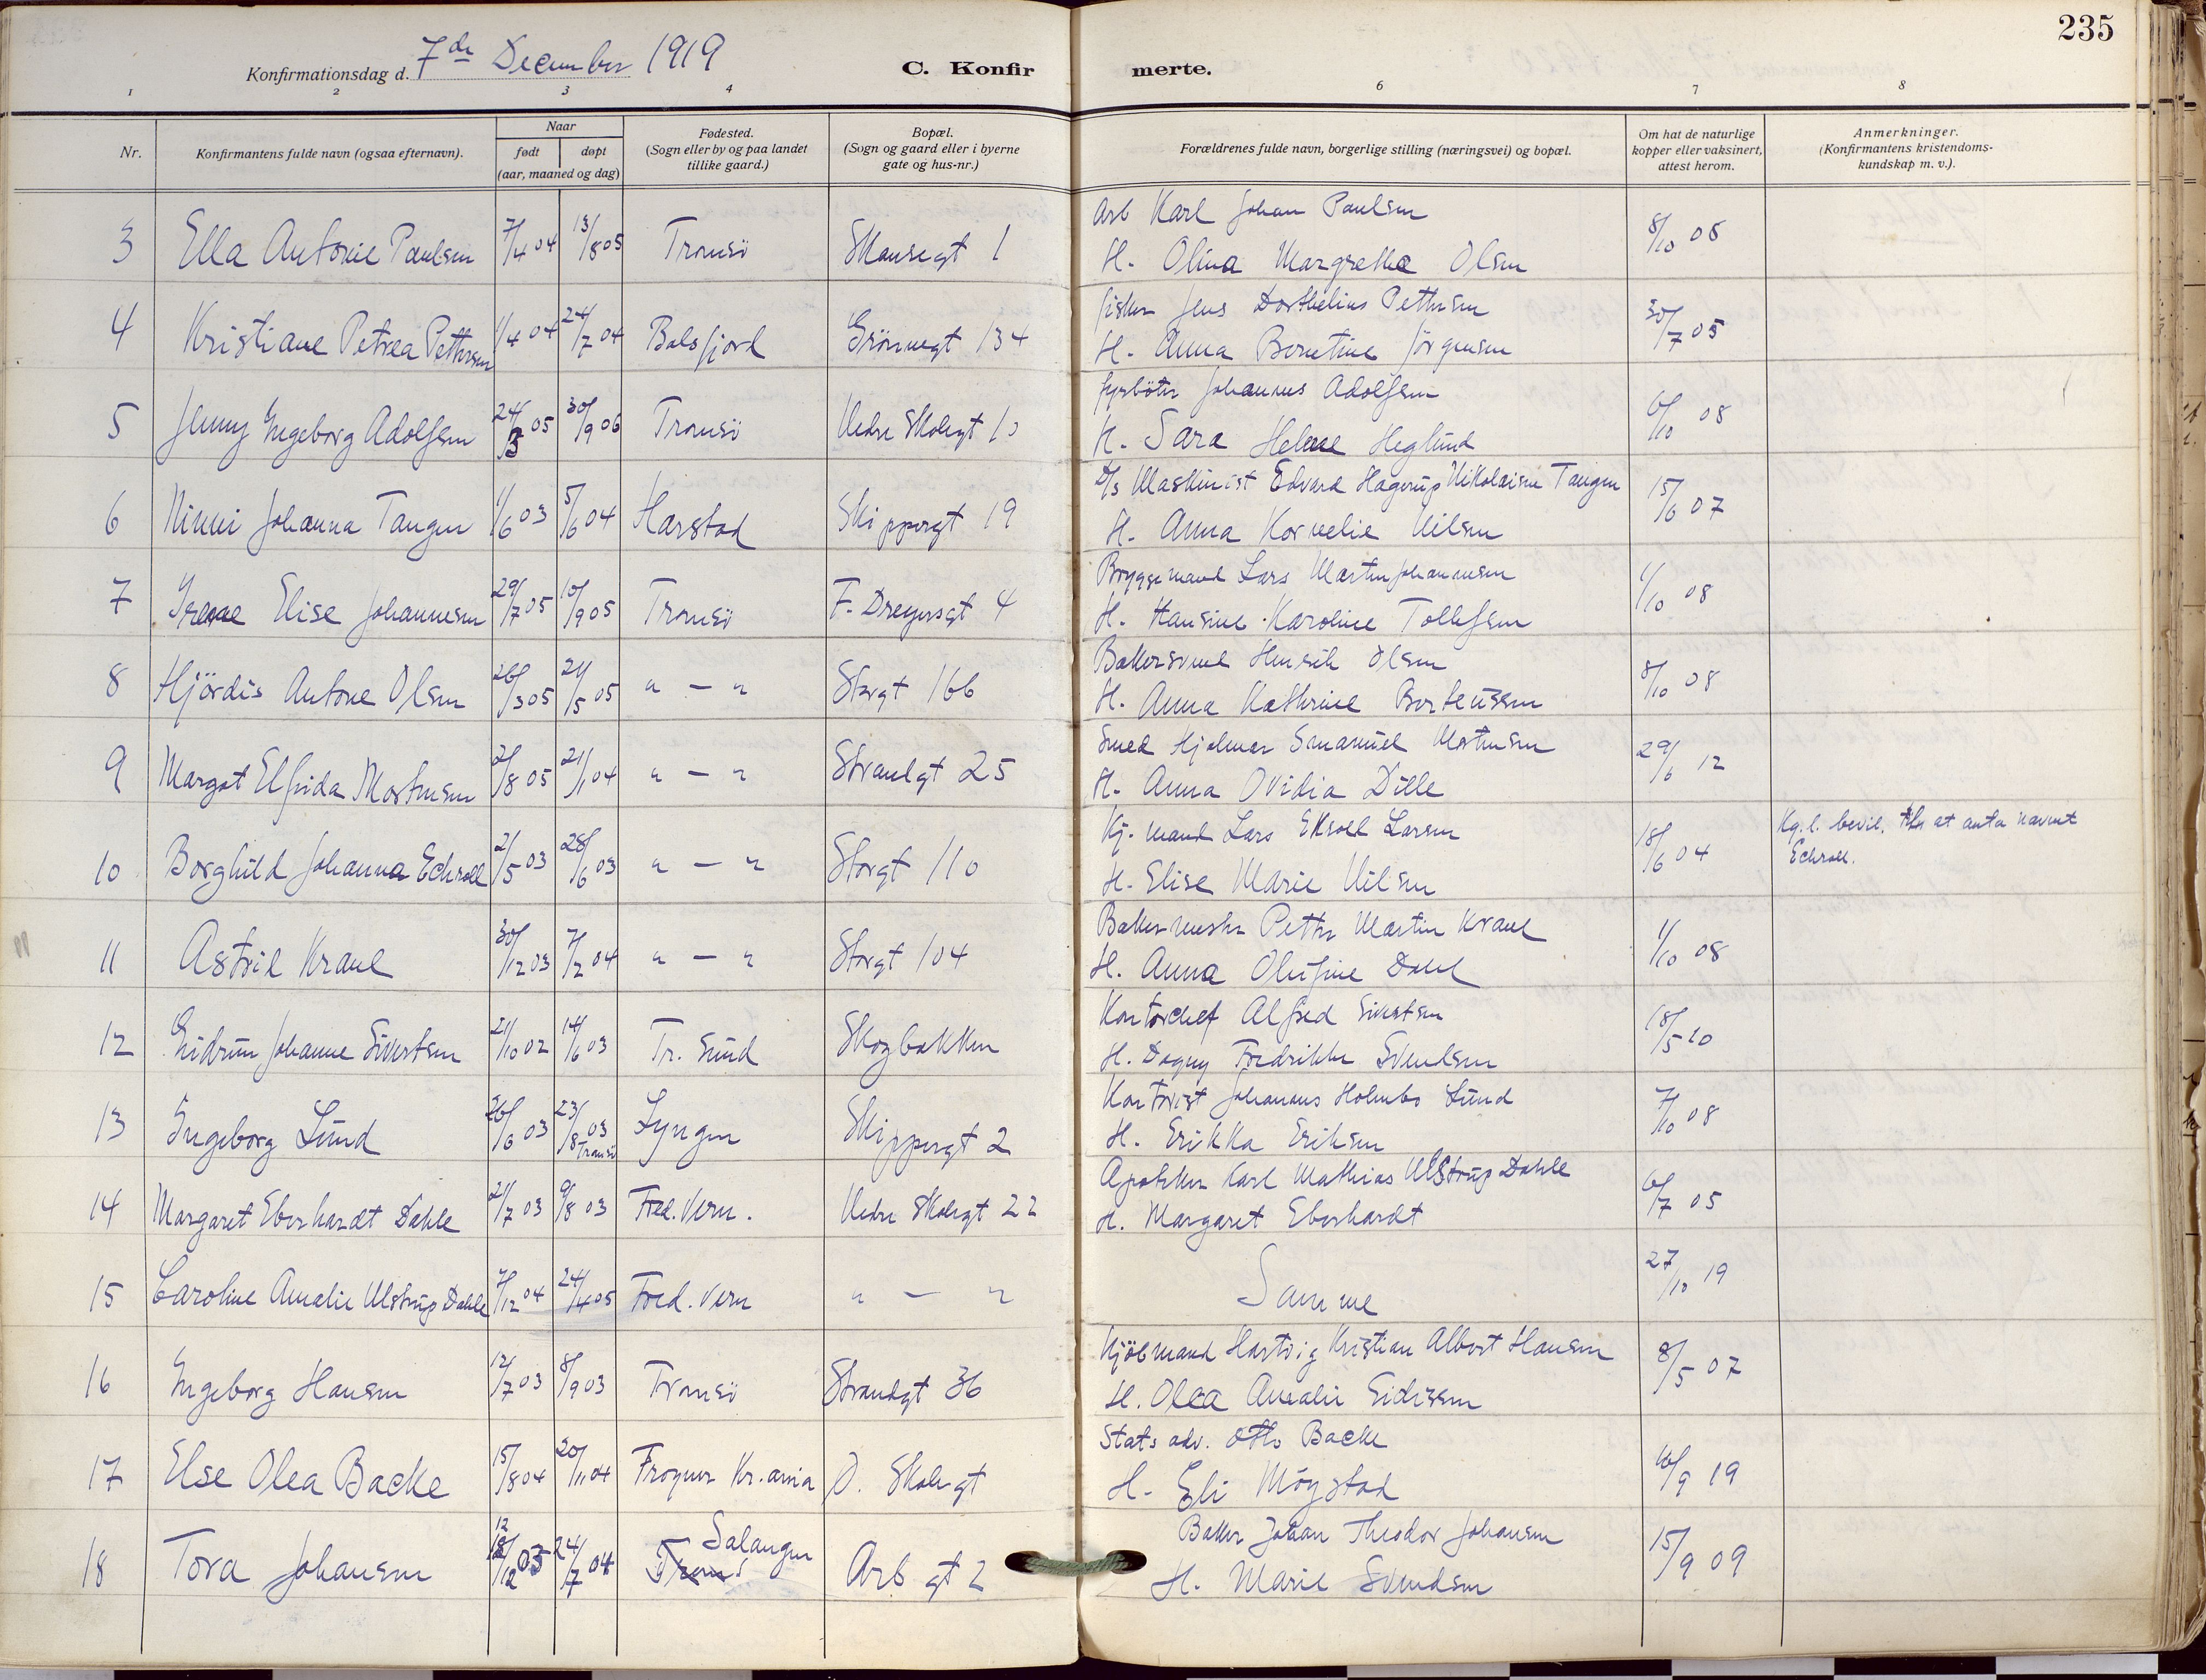 235
Konfirmationsdag d. 7de December 1919
C. Konfirmerte.
1 2 3 4 6 7 8
Nr.
Konfirmantens fulde navn (ogsaa efternavn).
Naar
født døpt
(aar, maaned og dag)
Fødested.
(Sogn eller by og paa landet
tillike gaard.)
Bopæl.
(Sogn og gaard eller i byerne
gate og hus-nr.)
Forældrenes fulde navn, borgerlige stilling (næringsvei) og bopæl.
Om hat de naturlige
kopper eller vaksinert,
attest herom.
Anmerkninger.
(Konfirmantens kristendoms-
kundskap m. v.).
Arb Karl Johan Paulsen
3 Ella Antonie Paulsen 7/4 04 13/8 05 Tromsö Skansegt 1 H. Olina Margrethe Olsen 8/10 08
fisker Jens Dorthelius Pettersen
4 Kristiane Petrea Pettersen 1/4 04 24/7 04 Balsfjord Grönnegt 134 H. Anna Berntine Jörgensen 30/7 05
fyrböter Johannes Adolfsen
5 Jenny Ingeborg Adolfsen 24/3 05 30/9 06 Tromsö Nedre Skolegt 10 H. Sara Helene Heglund 6/10 08
D/S Maskinist Edvard Hagerup Nikolaisen Tangen
6 Ninni Johanna Tangen 1/6 03 5/6 04 Harstad Skippergt 19 H. Anna Kornelie Nilsen 15/6 07
Bryggemand Lars Martin Johannesen
7 Irene Elise Johannesen 29/7 05 10/9 05 Tromsö F. Dreyersgt 4 H. Hansine Karoline Tollefsen 1/10 08
Bakersvend Henrik Olsen
8 Hjördis Antone Olsen 26/3 05 21/5 05 " — " Storgt 166 H. Anna Kathrine Berteussen 8/10 08
Smed Hjalmar Emanuel Mortensen
9 Margot Elfrida Mortensen 2/8 05 21/1 04 " — " Strandgt 25 H. Anna Ovidia Dille 29/6 12
Kj. mand Lars Ekroll Larsen
10 Borghild Johanna Echroll 2/5 03 28/6 03 " — " Storgt 110 H. Elise Marie Nilsen 18/6 04 Kg. l. bevil. til at anta navnet
Echroll.
Bakermester Petter Martin Krane
11 Astrid Krane 30/12 03 7/2 04 " — " Storgt 104 H. Anna Olufine Dahl 1/10 08
Kontorchef Alfred Sivertsen
12 Gudrun Johanne Sivertsen 21/10 02 14/6 03 Tr. sund Skogbakken H. Dagny Fredrikke Svendsen 18/5 10
Kontorist Johannes Holmbo Lund
13 Ingeborg Lund 26/6 03 23/8 03 Tromsö Lyngen Skippergt 2 H. Erikka Eriksen 7/10 08
Apoteker Karl Mathias Ulstrup Dahle
14 Margaret Eberhardt Dahle 21/7 03 9/8 03 Fred. Vern. Nedre Skolegt 22 H. Margaret Eberhardt 6/7 05
15 Caroline Amalie Ulstrup Dahle 7/12 04 24/4 05 Fred. Vern " — " Samme 27/10 19
Kjöbmand Hartvig Kristian Albert Hansen
16 Ingeborg Hansen 12/7 03 8/9 03 Tromsö Strandgt 36 H. Olea Amalie Eidissen 8/5 07
Stats adv. Otto Backe
17 Else Olea Backe 15/8 04 20/11 04 Frogner Kr.ania Ø. Skolegt H. Eli Möystad 16/9 19
Baker Johan Theodor Johansen
18 Tora Johansen 12/12 03 24/7 04 Troms Salangen Arb gt 2 H. Marie Svendsen 15/9 09